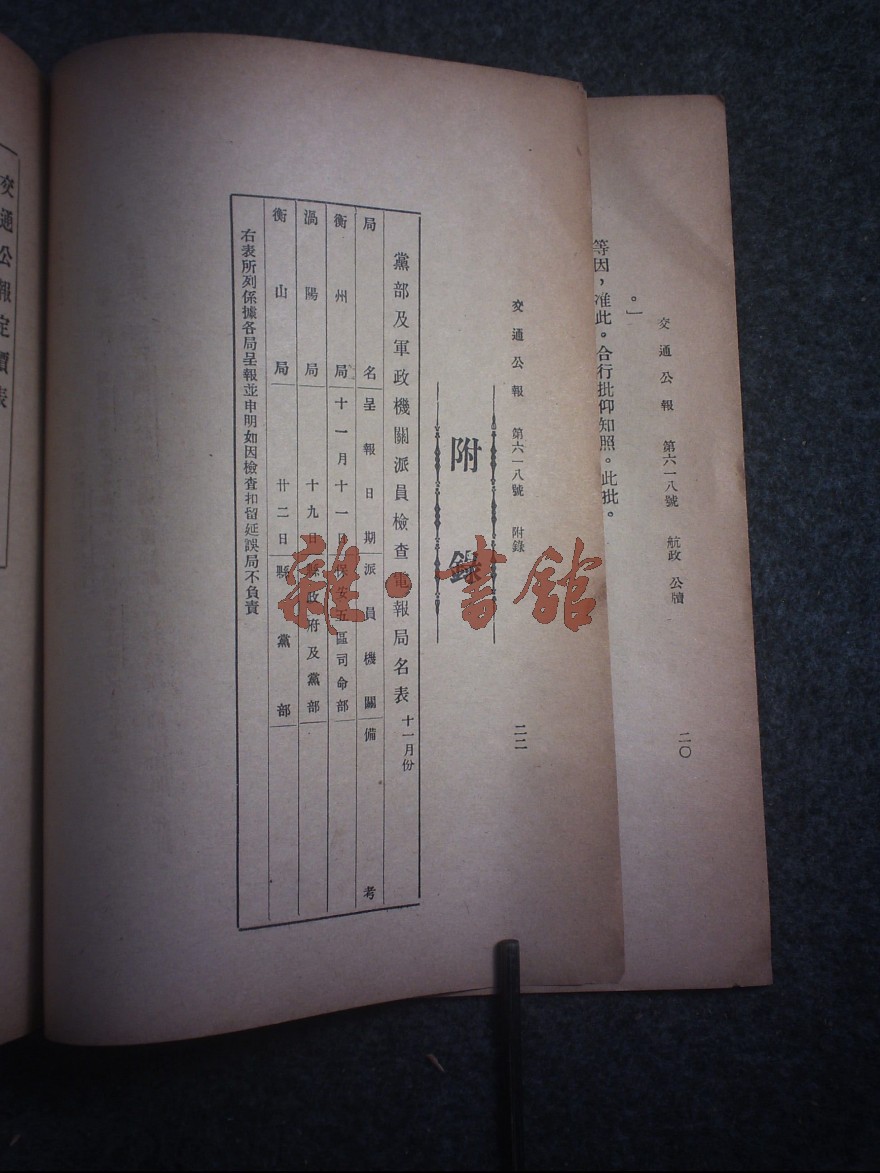 交通公報 第六一八號 航政 公牘 二〇
。」
等因，准此。合行批仰知照。此批。
交通公報 第六一八號 附錄 二二
附錄
黨部及軍政機關派員檢查電報局名表 十一月份
局名 呈報日期 派員機關 備考
衡州局 十一月十一日 保安五區司令部
渦陽局 十九日 縣政府及黨部
衡山局 廿二日 縣黨部
右表所列係據各局呈報並申明如因檢查扣留延誤局不負責
交通公報定價表
雜·書館